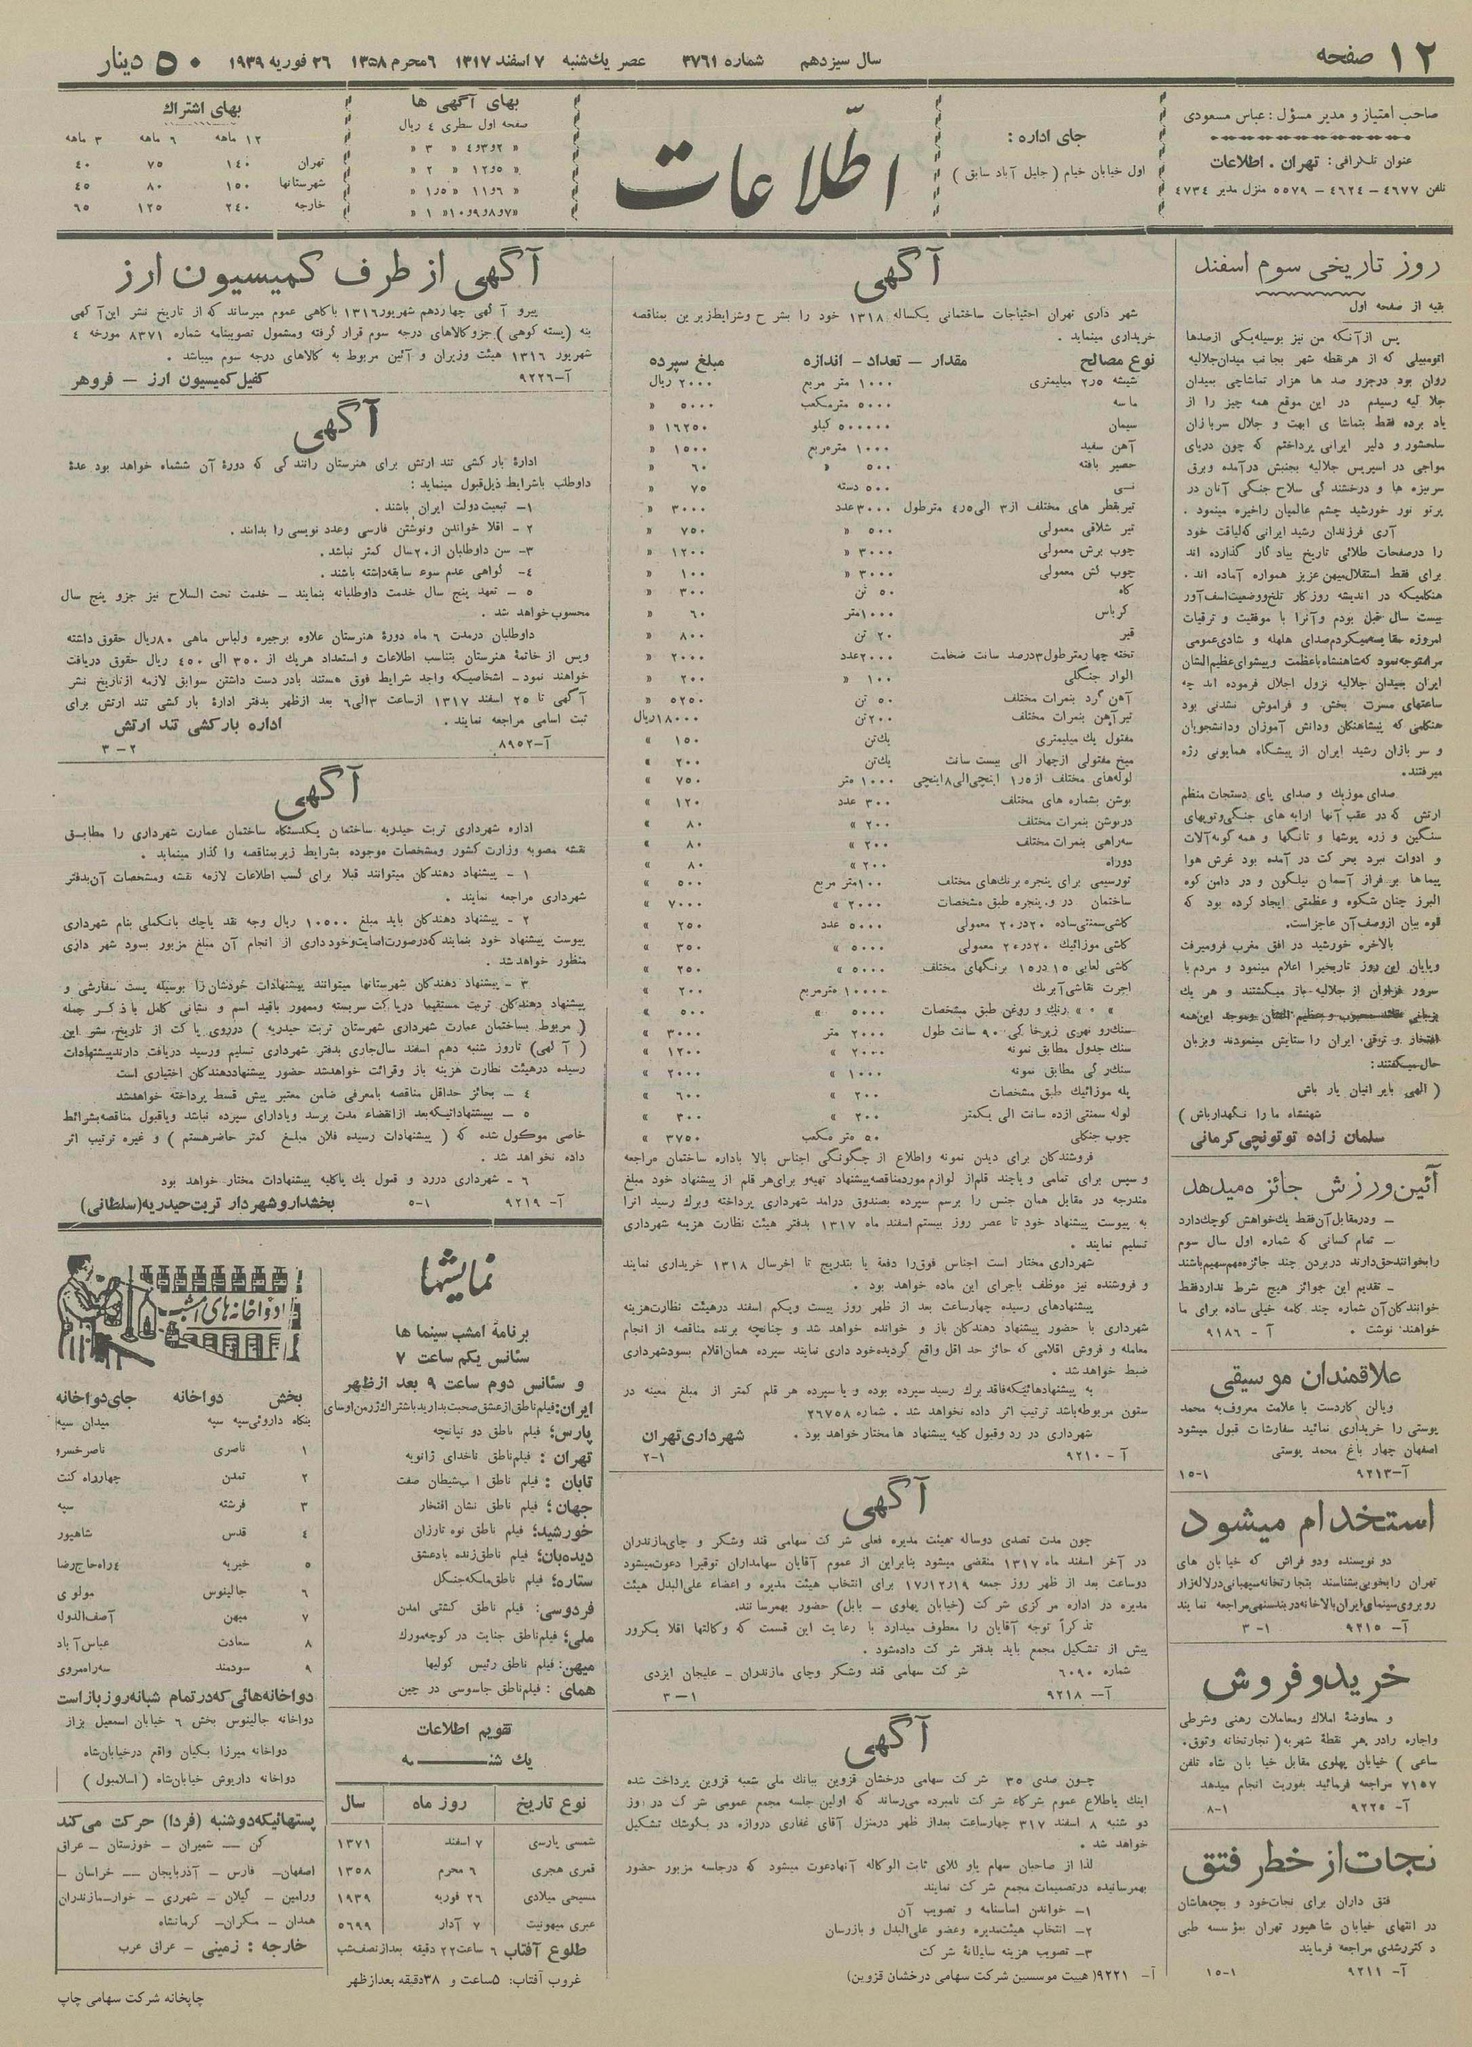 ۱۲ صفحه
سال سیزدهم شماره ۳۷۶۱ عصر یك‌شنبه ۷ اسفند ۱۳۱۷ ۶ محرم ۱۳۵۸ ۲۶ فوریه ۱۹۳۹
۵۰ دینار
صاحب امتیاز و مدیر مسؤل : عباس مسعودی
عنوان تلگرافی : تهران . اطلاعات
تلفن ۴۶۷۷ – ۴۶۲۴ – ۵۵۷۹ منزل مدیر ۴۷۳۴
جای اداره :
اول خیابان خیام ( جلیل آباد سابق )
اطّلاعات
بهای آگهی ها
صفحه اول سطری ٤ ریال
« ۲و۳و٤ « ۳ «
« ۵و۱۲ « ۲ «
« ۶و۱۱ « ۱٫۵ «
« ۷و۸و۹و۱۰ « ۱ «
بهای اشتراك
۱۲ ماهه ۶ ماهه ۳ ماهه
تهران ۱۴۰ ۷۵ ۴۰
شهرستانها ۱۵۰ ۸۰ ۴۵
خارجه ۲۴۰ ۱۲۵ ۶۵
روز تاریخی سوم اسفند
بقیه از صفحه اول
پس ازآنکه من نیز بوسیله‌یکی ازصدها
اتومبیلی که از هرنقطه شهر بجانب میدان‌جلالیه
روان بود درجزو صد ها هزار تماشاچی بمیدان
جلا لیه رسیدم در این موقع همه چیز را از
یاد برده فقط بتماشا ی ابهت و جلال سربازان
سلحشور و دلیر ایرانی پرداختم که چون دریای
مواجی در اسپریس جلالیه بجنبش درآمده وبرق
سرنیزه ها و درخشند گی سلاح جنگی آنان در
پرتو نور خورشید چشم عالمیان راخیره مینمود .
آری فرزندان رشید ایرانی که‌لیاقت خود
را درصفحات طلائی تاریخ بیاد گار گذارده اند
برای فقط استقلال‌میهن عزیز همواره آماده اند .
هنگامیکه در اندیشه روزگار تلخ‌ووضعیت‌اسف‌آور
بیست سال قبل بودم وآنرا با موفقیت و ترقیات
امروزه مقایسه‌میکردم‌صدای هلهله و شادی‌عمومی
مرامتوجه‌نمود که‌شاهنشاه‌باعظمت وپیشوای‌عظیم‌الشان
ایران بمیدان جلالیه نزول اجلال فرموده اند چه
ساعتهای مسرت بخش و فراموش نشدنی بود
هنگامی که پیشاهنگان ودانش آموزان ودانشجویان
و سر بازان رشید ایران از پیشگاه همایونی رژه
میرفتند.
صدای موزیك و صدای پای دستجات منظم
ارتش که در عقب آنها ارابه های جنگی‌وتوپهای
سنگین و زره پوشها و تانگها و همه گونه‌آلات
و ادوات نبرد بحر کت در آمده بود غرش هوا
پیماها بر فراز آسمان نیلگون و در دامن کوه
البرز چنان شکوه و عظمتی ایجاد کرده بود که
قوه بیان ازوصف آن عاجزاست.
بالاخره خورشید در افق مغرب فرومیرفت
وپایان این روز تاریخیرا اعلام مینمود و مردم با
سرور فراوان از جلالیه باز میگشتند و هر یك
افتخار و ترقی ایران را ستایش مینمودند وبزبان
حال‌میگفتند:
( الهی بایر انیان یار باش
شهنشاه ما را نگهدارباش )
سلمان زاده توتونچی کرمانی
آئین‌ورزش جائزه‌میدهد
– ودرمقابل‌آن‌فقط یك‌خواهش کوچك‌دارد
– تمام کسانی که شماره اول سال سوم
رابخوانندحق‌دارند دربردن چند جائزه‌مهم‌سهیم‌باشند
– تقدیم این جوائز هیچ شرط نداردفقط
خوانندگان‌آن شماره چند کلمه خیلی ساده برای ما
خواهند نوشت . آ – ۹۱۸۶
علاقمندان موسیقی
ویالن کاردست با علامت معروف‌به محمد
یوستی را خریداری نمائید سفارشات قبول میشود
اصفهان چهار باغ محمد یوستی
آ–۹۲۱۳ ۱–۱۵
استخدام میشود
دو نویسنده ودو فراش که خیا بان های
تهران رابخوبی‌بشناسند بتجارتخانه‌سیهبانی‌درلاله‌زار
روبروی‌سینمای‌ایران‌بالاخانه‌دربندسنهی‌مراجعه نمایند
آ– ۹۲۱۵ ۱–۳
خریدوفروش
و معاوضهٔ املاك ومعاملات رهنی وشرطی
واجاره رادر هر نقطهٔ شهر به ( تجارتخانه وثوق.
ساعی ) خیابان پهلوی مقابل خیا بان شاه تلفن
۷۱۵۷ مراجعه فرمائید بفوریت انجام میدهد
آ– ۹۲۲۵ ۱–۸
نجات‌از خطر فتق
فتق داران برای نجات‌خود و بچه‌هاشان
در انتهای خیابان شاهپور تهران بمؤسسه طبی
دکتررشدی مراجعه فرمایند
آ– ۹۲۱۱ ۱–۱۵
آگهی
شهر داری تهران احتیاجات ساختمانی یکساله ۱۳۱۸ خود را بشرح وشرایط‌زیرین بمناقصه
خریداری مینماید .
نوع مصالح مقدار – تعداد – اندازه مبلغ سپرده
شیشه ۲٫۵ میلیمتری ۱۰۰۰ متر مربع ۲۰۰۰ ریال
ماسه ۵۰۰۰ مترمکعب ۵۰۰۰ «
سیمان ۵۰۰۰۰۰ کیلو ۱۶۲۵۰ «
آهن سفید ۱۰۰۰ مترمربع ۱۵۰۰ «
حصیر بافته ۵۰۰ « ۶۰ «
نسی ۵۰۰ دسته ۷۵ «
تیربقطر های مختلف از۳ الی۴٫۵ مترطول ۳۰۰۰عدد ۳۰۰۰ «
تیر شلاقی معمولی ۵۰۰ « ۷۵۰ «
چوب برش معمولی ۳۰۰۰ « ۱۲۰۰ «
چوب لش معمولی ۳۰۰۰ « ۱۰۰ «
کاه ۵۰ تن ۳۰۰ «
کرباس ۱۰۰۰متر ۶۰ «
قیر ۲۰ تن ۸۰۰ «
تخته چهارمترطول۳درصد سانت ضخامت ۲۰۰۰عدد ۲۰۰۰ «
الوار جنگلی ۱۰۰ « ۲۰۰ «
آهن گرد بنمرات مختلف ۵۰ تن ۵۲۵۰ «
تیرآهن بنمرات مختلف ۲۰۰تن ۱۸۰۰۰ریال
مفتول یك میلیمتری یك‌تن ۱۵۰ »
میخ مفتولی ازچهار الی بیست سانت یك‌تن ۲۰۰ »
لوله‌های مختلف از۱٫۵ اینچی‌الی۸اینچی ۱۰۰۰ متر ۷۵۰ »
بوشن بشماره های مختلف ۳۰۰ عدد ۱۲۰ »
درنوشن بنمرات مختلف ۲۰۰ » ۸۰ »
سه‌راهی بنمرات مختلف ۲۰۰ » ۸۰ »
دوراه ۲۰۰ » ۸۰ »
تورسیمی برای پنجره برنك‌های مختلف ۱۰۰متر مربع ۵۰۰ »
ساختمان در و پنجره طبق مشخصات ۲۰۰۰ » ۷۰۰۰ »
کاشی‌سمنتی‌ساده ۲۰در۲۰ معمولی ۵۰۰۰ عدد ۲۵۰ »
کاشی موزائیك ۲۰در۲۰ معمولی ۵۰۰۰ » ۳۵۰ »
کاشی لعابی ۱۵ در۱۵ برنگهای مختلف ۵۰۰۰ » ۲۵۰ »
اجرت نقاشی‌آبرنك ۱۰۰۰۰ مترمربع ۲۰۰ »
» » رنك و روغن طبق مشخصات ۵۰۰۰ » ۵۰۰ »
سنك‌رو نهری زیرخاکی ۹۰ سانت طول ۲۰۰۰ متر ۳۰۰۰ »
سنك جدول مطابق نمونه ۲۰۰۰ » ۱۲۰۰ »
سنك‌رگی مطابق نمونه ۱۰۰۰ » ۲۰۰۰ »
پله موزائیك طبق مشخصات ۲۰۰ » ۶۰۰ »
لوله سمنتی ازده سانت الی یکمتر ۲۰۰ » ۳۰۰ »
چوب جنگلی ۵۰ متر مکعب ۳۷۵۰ »
فروشندگان برای دیدن نمونه واطلاع از چگونگی اجناس بالا باداره ساختمان مراجعه
و سپس برای تمامی و یاچند قلم‌از لوازم موردمناقصه‌پیشنهاد تهیه‌و برای‌هر قلم از پیشنهاد خود مبلغ
مندرجه در مقابل همان جنس را برسم سپرده بصندوق درامد شهرداری پرداخته وبرك رسید انرا
به پیوست پیشنهاد خود تا عصر روز بیستم اسفند ماه ۱۳۱۷ بدفتر هیئت نظارت هزینه شهرداری
تسلیم نمایند .
شهرداری مختار است اجناس فوق‌را دفعة یا بتدریج تا اخرسال ۱۳۱۸ خریداری نمایند
و فروشنده نیز موظف باجرای این ماده خواهد بود .
پیشنهادهای رسیده چهارساعت بعد از ظهر روز بیست ویکم اسفند درهیئت نظارت‌هزینه
شهرداری با حضور پیشنهاد دهندگان باز و خوانده خواهد شد و چنانچه برنده مناقصه از انجام
معامله و فروش اقلامی که حائز حد اقل واقع گردیده‌خود داری نمایند سپرده همان‌اقلام بسودشهرداری
ضبط خواهدشد .
به پیشنهادهائیکه‌فاقد برك رسید سپرده بوده و یاسپرده هر قلم کمتر از مبلغ معینه در
ستون مربوطه‌باشد ترتیب اثر داده نخواهد شد . شماره ۲۶۷۵۸
شهرداری در رد وقبول کلیه پیشنهاد ها مختار خواهد بود . شهرداری‌تهران
آ – ۹۲۱۰ ۱–۲
آگهی
چون مدت تصدی دوساله هیئت مدیره فعلی شر کت سهامی قند وشکر و چای‌مازندران
در آخر اسفند ماه ۱۳۱۷ منقضی میشود بنابراین از عموم آقایان سهامداران توقیرا دعوت‌میشود
دوساعت بعد از ظهر روز جمعه ۱۷٫۱۲٫۱۹ برای انتخاب هیئت مدیره و اعضاء علی‌البدل هیئت
مدیره در اداره مرکزی شرکت (خیابان پهلوی – بابل) حضور بهمرسانند.
تذکراً توجه آقایان را معطوف میدارد با رعایت این قسمت که وکالتها اقلا یکروز
پیش از تشکیل مجمع باید بدفتر شرکت داده‌شود .
شماره ۶۰۹۰ شر کت سهامی قند وشکر وچای مازندران – علیجان ایزدی
آ– ۹۲۱۸ ۱–۳
آگهی
چـون صدی ۳۵ شر کت سهامی درخشان قزوین ببانك ملی شعبه قزوین پرداخت شده
اینك باطلاع عموم شرکاء شر کت نامبرده می‌رساند که اولین جلسه مجمع عمومی شر کت در روز
دو شنبه ۸ اسفند ۳۱۷ چهارساعت بعداز ظهر درمنزل آقای غفاری دروازه در بکوشك تشکیل
خواهد شد .
لذا از صاحبان سهام یاو کلای ثابت الوکاله آنهادعوت میشود که درجلسه مزبور حضور
بهمرسانیده درتصمیمات مجمع شر کت نمایند
۱– خواندن اساسنامه و تصویب آن
۲– انتخاب هیئت‌مدیره وعضو علی‌البدل و بازرسان
۳– تصویب هزینه سالیانهٔ شر کت
آ– ۹۲۲۱ ( هییت موسسین شرکت سهامی درخشان قزوین)
آگهی از طرف کمیسیون ارز
پیرو آ گهی چهاردهم شهریور۱۳۱۶ باگاهی عموم میرساند که از تاریخ نشر این‌آ گهی
بنه (پسته کوهی ) جزو کالاهای درجه سوم قرار گرفته ومشمول تصویبنامه شماره ۸۳۷۱ مورخه ٤
شهریور ۱۳۱۶ هیئت وزیران و آئین مربوط به کالاهای درجه سوم میباشد .
آ–۹۲۲۶ کفیل کمیسیون ارز – فروهر
آگهی
ادارهٔ بار کشی تند ارتش برای هنرستان رانندگی که دورهٔ آن ششماه خواهد بود عدهٔ
داوطلب باشرایط ذیل‌قبول مینماید :
۱– تبعیت‌دولت ایران باشند .
۲ – اقلا خواندن ونوشتن فارسی وعدد نویسی را بدانند .
۳– سن داوطلبان از۲۰سال کمتر نباشد .
٤– گواهی عدم سوء سابقه‌داشته باشند .
۵ – تعهد پنج سال خدمت داوطلبانه بنمایند – خدمت تحت السلاح نیز جزو پنج سال
محسوب خواهد شد .
داوطلبان درمدت ۶ ماه دورهٔ هنرستان علاوه برجیره ولباس ماهی ۸۰ریال حقوق داشته
وپس از خاتمهٔ هنرستان بتناسب اطلاعات و استعداد هریك از ۳۵۰ الی ۴۵۰ ریال حقوق دریافت
خواهند نمود– اشخاصیکه واجد شرایط فوق هستند بادر دست داشتن سوابق لازمه ازتاریخ نشر
آگهی تا ۲۵ اسفند ۱۳۱۷ ازساعت ۳الی۶ بعد ازظهر بدفتر ادارهٔ بار کشی تند ارتش برای
ثبت اسامی مراجعه نمایند . اداره بارکشی تند ارتش
آ–۸۹۵۲ ۲–۳
آگهی
اداره شهرداری تربت حیدریه ساختمان یکدستگاه ساختمان عمارت شهرداری را مطابـق
نقشه مصوبه وزارت کشور ومشخصات موجوده بشرایط زیربمناقصه وا گذار مینماید .
۱ – پیشنهاد دهندگان میتوانند قبلا برای کسب اطلاعات لازمه نقشه ومشخصات آن‌بدفتر
شهرداری مراجعه نمایند .
۲ – پیشنهاد دهندگان باید مبلغ ۱۰۵۰۰ ریال وجه نقد یاچك بانکملی بنام شهرداری
پیوست پیشنهاد خود بنمایندکه‌درصورت‌اصابت‌وخودداری از انجام آن مبلغ مزبور بسود شهر داری
منظور خواهدشد .
۳ – پیشنهاد دهندگان شهرستانها میتوانند پیشنهادات خودشان‌را بوسیله پست سفارشی و
پیشنهاد دهندگان تربت مستقیما درپاکت سربسته وممهور باقید اسم و نشانی کامل با ذکر جمله
( مربوط بساختمان عمارت شهرداری شهرستان تربت حیدریه ) درروی پاکت از تاریخ نشر این
( آگهی) تاروز شنبه دهم اسفند سال‌جاری بدفتر شهرداری تسلیم ورسید دریافت دارندپیشنهادات
رسیده درهیئت نظارت هزینه باز وقرائت خواهدشد حضور پیشنهاددهندگان اختیاری است
٤ – بحائز حداقل مناقصه بامعرفی ضامن معتبر پیش قسط پرداخته خواهدشد
۵ – بپیشنهاداتیکه‌بعد ازانقضاء مدت برسد وبادارای سپرده نباشد ویاقبول مناقصه‌بشرائط
خاصی موکول شده که ( پیشنهادات رسیده فلان مبلـغ کمتر حاضرهستم ) و غیره ترتیب اثر
داده نخواهد شد .
۶ – شهرداری دررد و قبول یك یاکلیه پیشنهادات مختار خواهد بود
آ– ۹۲۱۹ ۱–۵ بخشداروشهردار تربت‌حیدریه(سلطانی)
نمایشها
برنامهٔ امشب سینما ها
سئانس یکم ساعت ۷
و سئانس دوم ساعت ۹ بعد ازظهر
ایران: فیلم‌ناطق‌ازعشق‌صحبت‌بداریدباشتراك‌ژرمن‌اوسای
پارس؛ فیلم ناطق دو تپانچه
تهران : فیلم‌ناطق ناخدای ژانویه
تابان : فیلم ناطق اسب‌شیطان صفت
جهان؛ فیلم ناطق نشان افتخار
خورشید؛ فیلم ناطق نوه تارزان
دیده‌بان؛ فیلم ناطق‌زنده بادعشق
ستاره؛ فیلم ناطق‌ملکه‌جنگل
فردوسی: فیلم ناطق کشتی امدن
ملی؛ فیلم‌ناطق جنایت در کوچه‌مورك
میهن: فیلم ناطق رئیس کولیها
همای : فیلم‌ناطق جاسوسی در چین
تقویم اطلاعات
یك شنـــــبه
نوع تاریخ روز ماه سال
شمسی پارسی ۷ اسفند ۱۳۷۱
قمری هجری ۶ محرم ۱۳۵۸
مسیحی میلادی ۲۶ فوریه ۱۹۳۹
عبری میهونیت ۷ آدار ۵۶۹۹
طلوع آفتاب ۶ ساعت۲۲ دقیقه بعدازنصف‌شب
غروب آفتاب: ۵ساعت و ۳۸دقیقه بعدازظهر
دواخانه‌های امشب
بخش دواخانه جای‌دواخانه
بنگاه داروئی‌سپه سپه میدان سپه
۱ ناصری ناصرخسرو
۲ تمدن چهارراه کنت
۳ فرشته سپه
٤ قدس شاهپور
۵ خیریه ٤راه‌حاج‌رضا
۶ جالینوس مولوی
۷ میهن آصف‌الدوله
۸ سعادت عباس‌آباد
۹ سودمند سه‌راه‌مروی
دواخانه‌هائی‌که‌درتمام شبانه‌روزبازاست
دواخانه جالینوس بخش ۶ خیابان اسمعیل بزاز
دواخانه میرزا بکیان واقع درخیابان‌شاه
دواخانه داریوش خیابان‌شاه ( اسلامبول )
پستهائیکه‌دوشنبه (فردا) حرکت می‌کند
کن – شمیران – خوزستان – عراق
اصفهان– فارس – آذربایجان – خراسان –
ورامین – گیلان – شهرری – خوار–مازندران
همدان – مکران– کرمانشاه
خارجه : زمینی – عراق عرب
چاپخانه شرکت سهامی چاپ